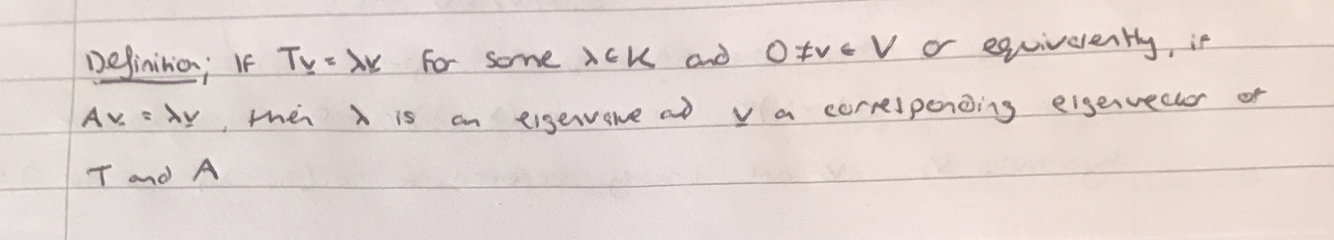 Definition; If Tv̲ = λv̲ for some λ∈K and 0≠v∈V or equivalently, if
Av̲ = λv̲, then λ is an eigenvalue ad v̲ a corresponding eigenvector of
T and A